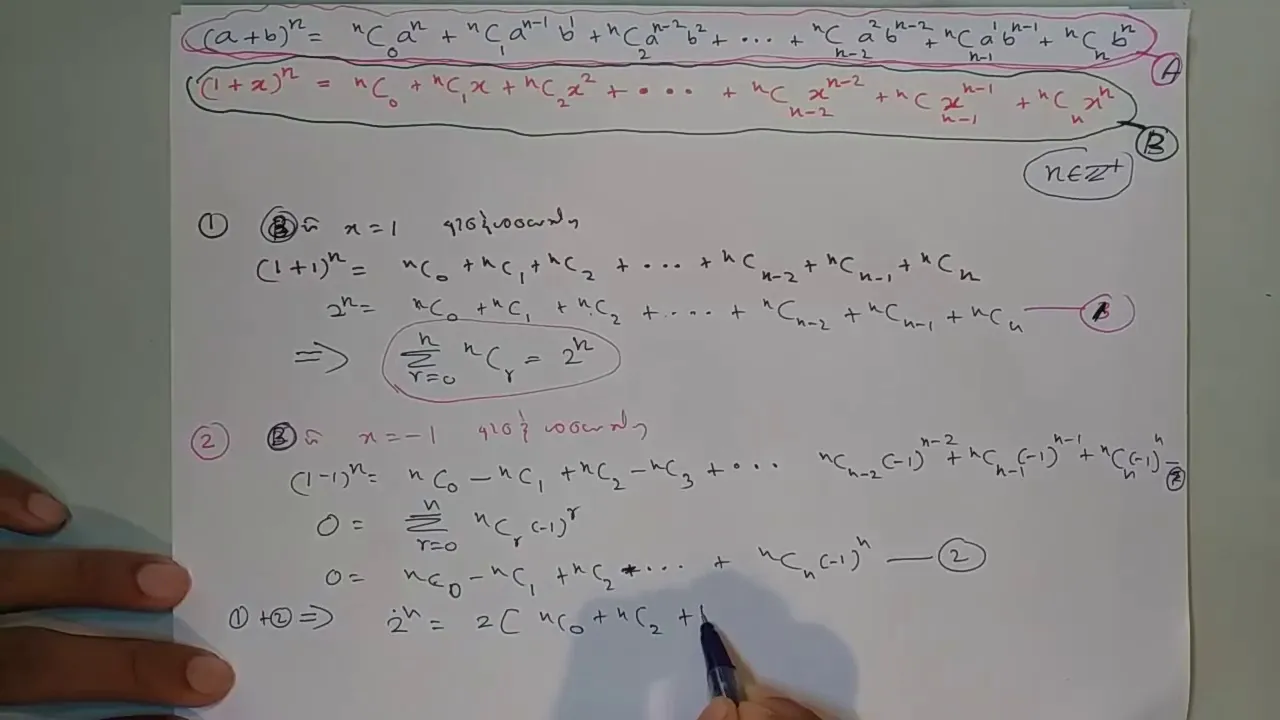 (a+b)ⁿ = ⁿC₀aⁿ + ⁿC₁aⁿ⁻¹b¹ + ⁿC₂aⁿ⁻²b² + ... + ⁿCₙ₋₂a²bⁿ⁻² + ⁿCₙ₋₁a¹bⁿ⁻¹ + ⁿCₙbⁿ A
(1+x)ⁿ = ⁿC₀ + ⁿC₁x + ⁿC₂x² + ... + ⁿCₙ₋₂xⁿ⁻² + ⁿCₙ₋₁xⁿ⁻¹ + ⁿCₙxⁿ B
n∈ℤ⁺
① B x = 1
(1+1)ⁿ = ⁿC₀ + ⁿC₁ + ⁿC₂ + ... + ⁿCₙ₋₂ + ⁿCₙ₋₁ + ⁿCₙ
2ⁿ = ⁿC₀ + ⁿC₁ + ⁿC₂ + .... + ⁿCₙ₋₂ + ⁿCₙ₋₁ + ⁿCₙ —
⇒ ∑ⁿᵣ₌₀ ⁿCᵣ = 2ⁿ
② B x = -1
(1-1)ⁿ = ⁿC₀ - ⁿC₁ + ⁿC₂ - ⁿC₃ + ... ⁿCₙ₋₂(-1)ⁿ⁻² + ⁿCₙ₋₁(-1)ⁿ⁻¹ + ⁿCₙ(-1)ⁿ — ②
0 = ∑ⁿᵣ₌₀ ⁿCᵣ(-1)ʳ
0 = ⁿC₀ - ⁿC₁ + ⁿC₂ + ... + ⁿCₙ(-1)ⁿ — ②
① + ② ⇒ 2ⁿ = 2( ⁿC₀ + ⁿC₂ +